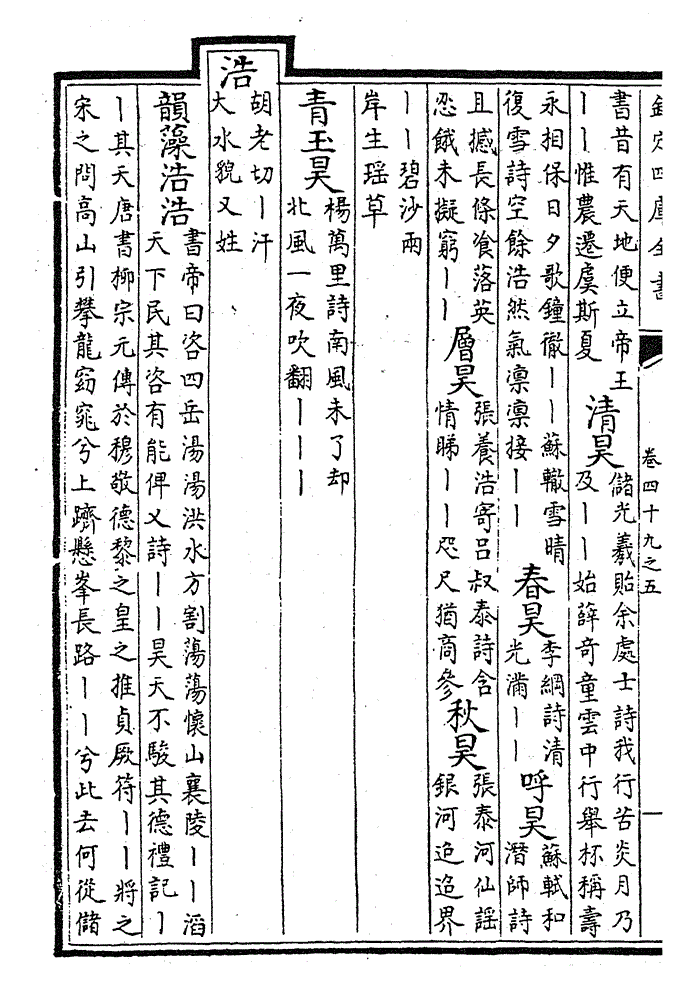 欽定四庫全書
卷四十九之五
一
書昔有天地便立帝王
丨丨惟農遷虞斯夏
清昊
儲光羲貽余處士詩我行苦炎月乃
及丨丨始薛奇童雲中行舉杯稱壽
永相保日夕歌鐘徹丨丨蘇轍雪晴
復雪詩空餘浩然氣凛凛接丨丨
春昊
李綱詩清
光滿丨丨
呼昊
蘇軾和
潛師詩
且撼長條飡落英
忍餓未擬窮丨丨
層昊
張養浩寄呂叔泰詩含
情睇丨丨咫尺猶商參
秋昊
張泰河仙謡
銀河迢迢界
丨丨碧沙兩
岸生瑶草
青玉昊
楊萬里詩南風未了却
北風一夜吹翻丨丨丨
浩
胡老切丨汗
大水貌又姓
韻藻浩浩
書帝曰咨四岳湯湯洪水方割蕩蕩懷山襄陵丨丨滔
天下民其咨有能俾乂詩丨丨昊天不駿其德禮記丨
丨其天唐書柳宗元傳於穆敬德黎之皇之推貞厥符丨丨將之
宋之問高山引攀龍窈窕兮上躋懸峯長路丨丨兮此去何從儲